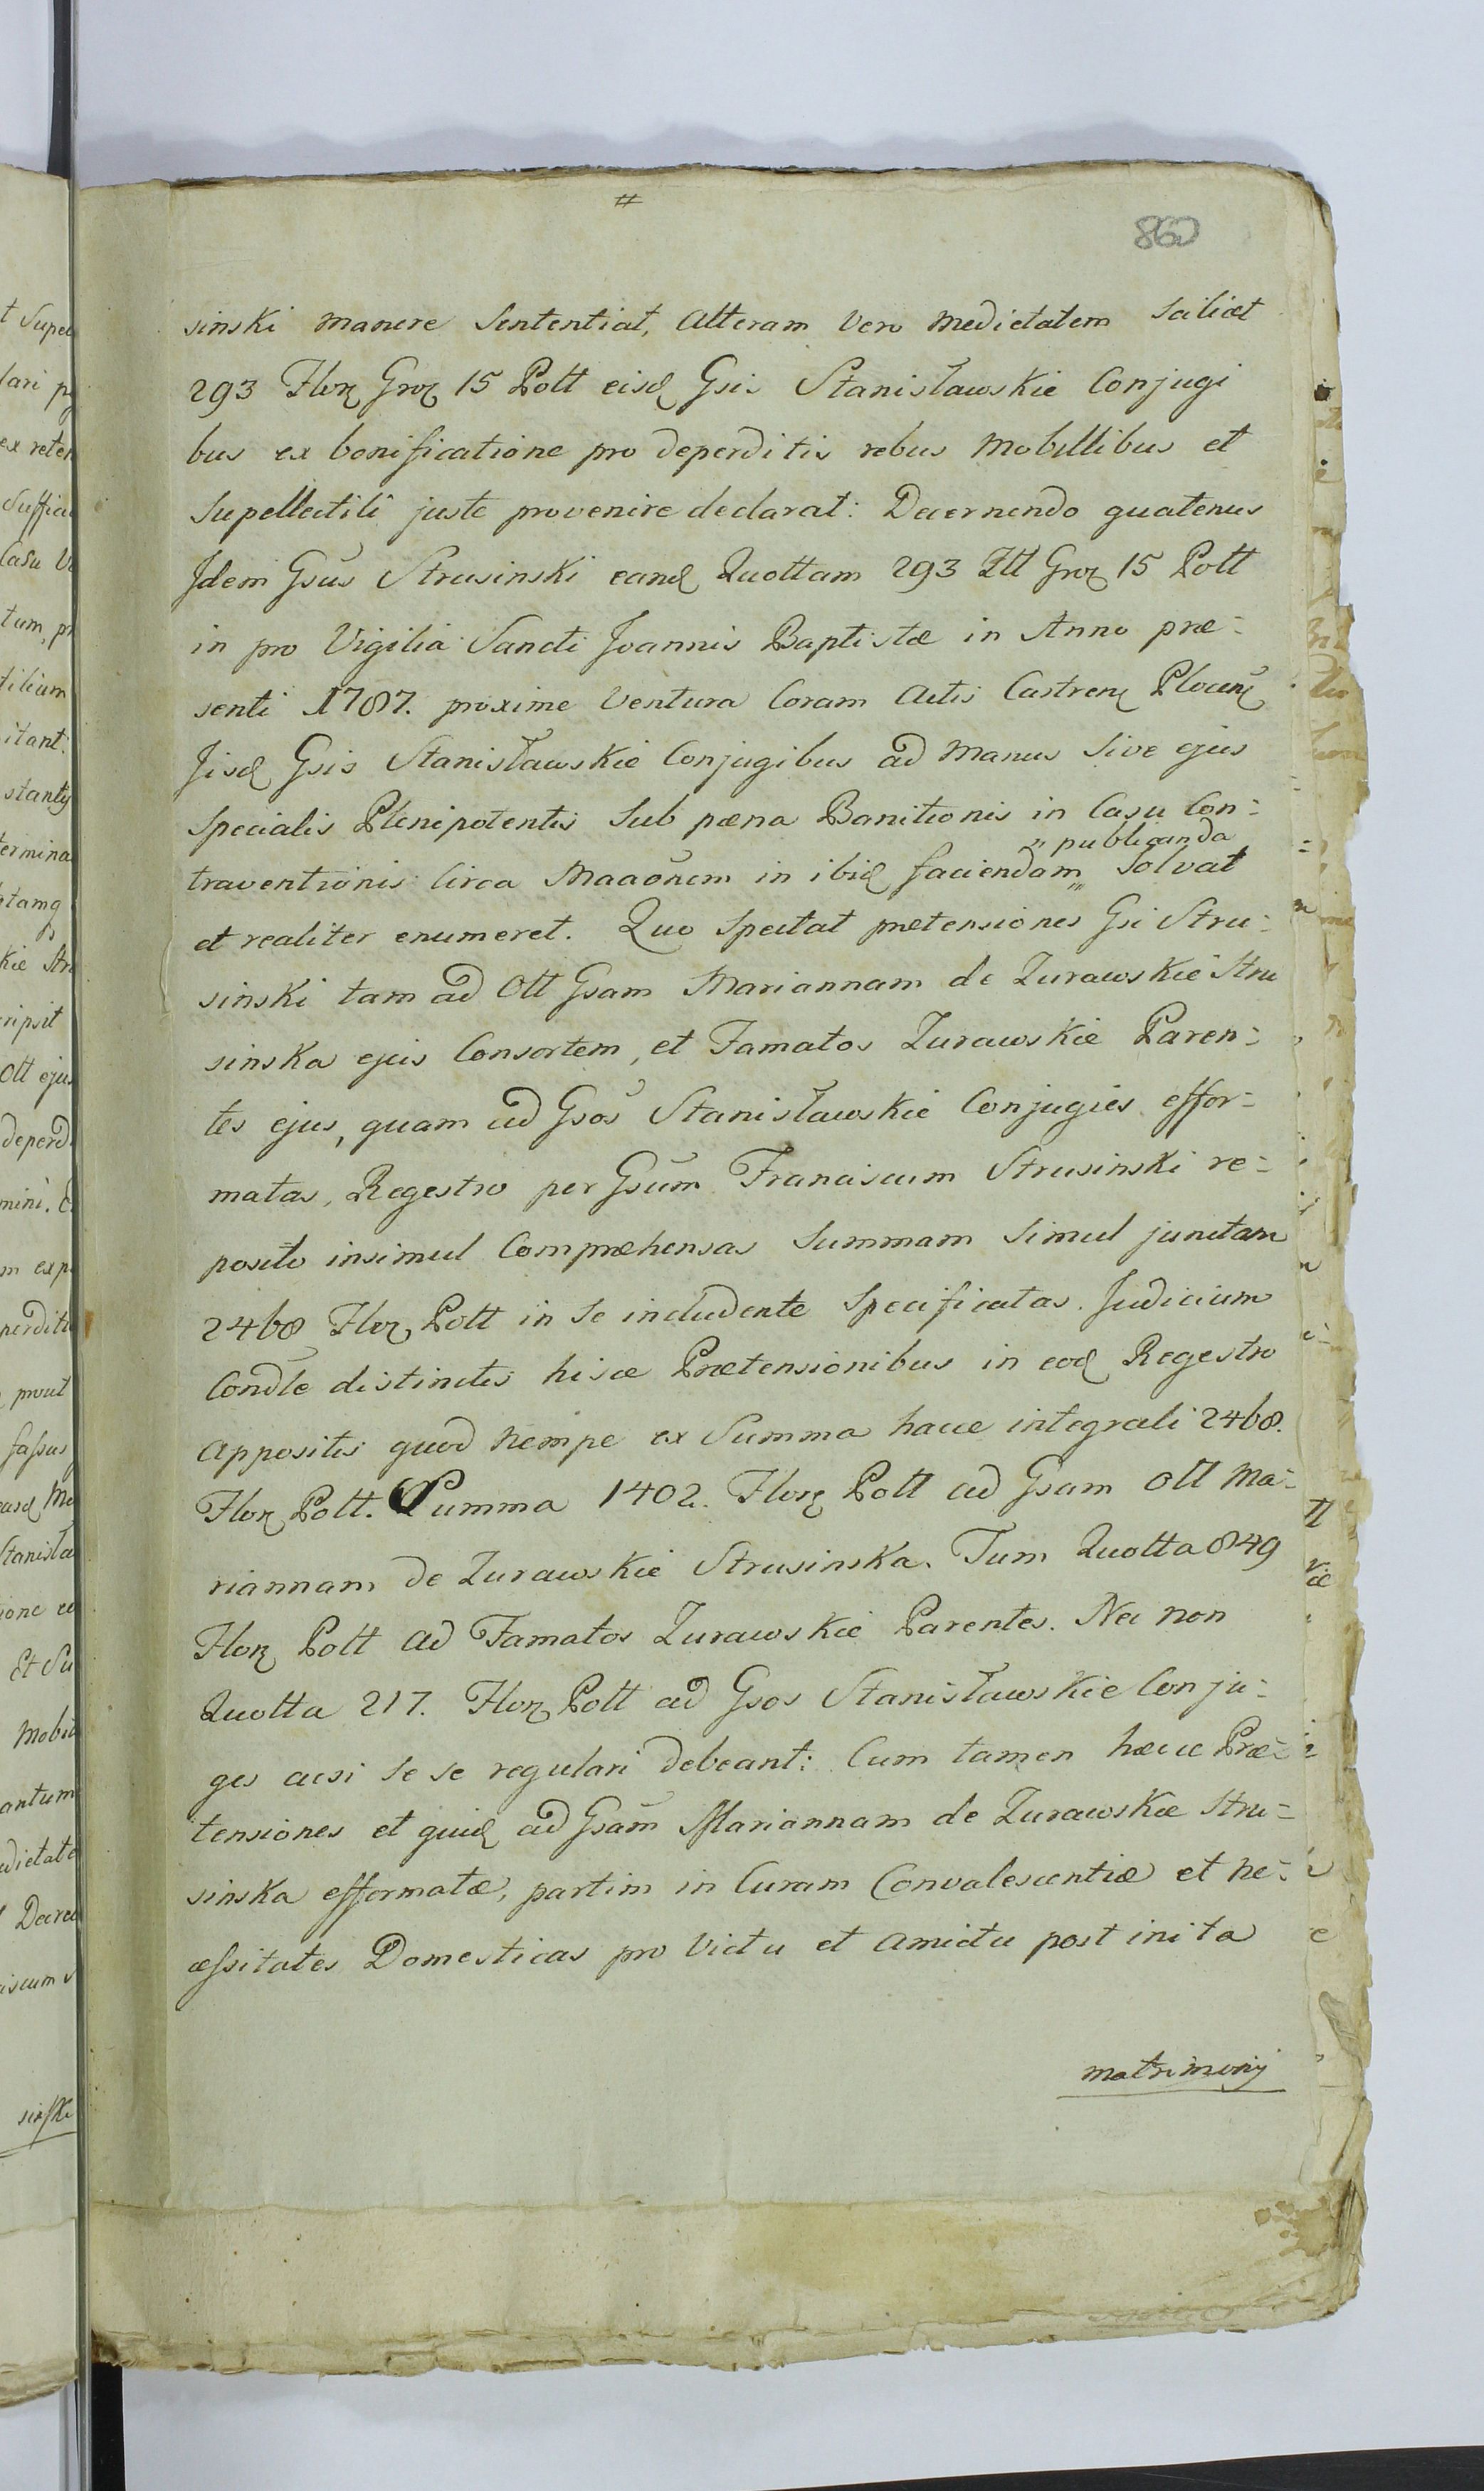 #
860
sinski manere Sententiat, Alteram Vero Medietatem Scilicet
293 Flor Groz 15 Poll eisd Gsis Stanisławskie Conjugi
bus ex bonificatione pro deperditis rebus Mobillibus et
Supellectili juste provenire declarat: Decernendo quatenus
Idem Gsūs Strusinski eand Quottam 293 Zll Groz 15 Poll
in pro Vigilia Sancti Joannis Baptistæ in Anno præ=
senti 1787. proxime Ventura Coram Actis Castren Plocen
Iisd Gsis Stanisławskie Conjugibus ad Manus Sive ejus
Specialis Plenipotentis Sub pæna Banitionis in Casu Con=
„ publicanda
traventionis Circa Maaōnem in ibid faciendam „ Solvat
et realiter enumeret. Quo Spectat prætensiones Gsi Stru=
sinski tam ad Oll Gsam Mariannam de Zurawskie Stru
sinska ejus Consortem, et Famatos Zurawskie Paren=
tes ejus, quam ad Gsos Stanisławskie Conjugies effor=
matas, Regestro per Gsūm Franciscum Strusinski re=
posito insimul Compræhensas Summam Simul junctam
2468 Flor Poll in Se includente Specificatas. Judicium
Condle distinctis hisce Prætensionibus in eod Regestro
Appositis quod Nempe ex Summa hacce integrali 2468.
Flor Poll. Summa 1402. Flor Poll ad Gsam Oll Ma=
riannam de Zurawskie Strusinska. Tum Quotta 849
Flor Poll ad Famatos Zurawskie Parentes. Nec non
Quotta 217. Flor Poll ad Gsos Stanisławskie Conju=
ges acsi Se se regulari debeant: Cum tamen hæcce Præ=
tensiones et quid ad Gsām Mariannam de Zurawskie Stru=
sinska efformatæ, partim in Curam Convalescentiæ et ne=
cessitates Domesticas pro Victu et Amictu post inita
matrimonij